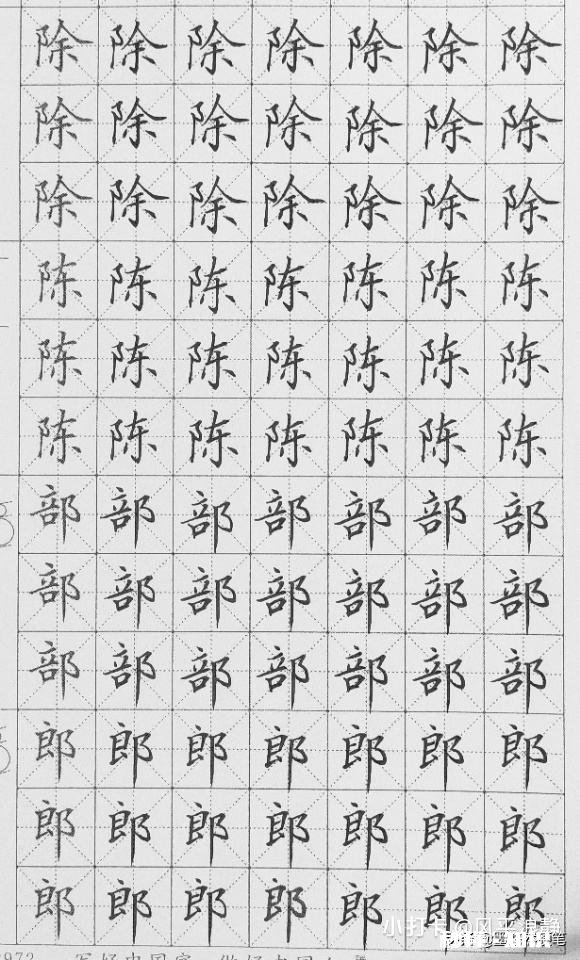 除除除除除除除
除除除除除除除
除除除除除除除
陈陈陈陈陈陈陈
陈陈陈陈陈陈陈
陈陈陈陈陈陈陈
部部部部部部部
部部部部部部部
部部部部部部部
郎郎郎郎郎郎郎
郎郎郎郎郎郎郎
郎郎郎郎郎郎郎
小打卡@风平浪静